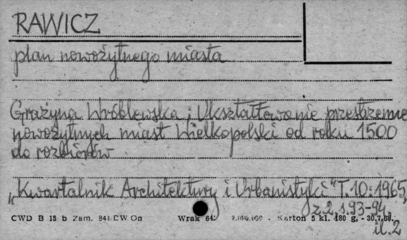 RAWICZ
plan nowożytnego miasta
Grażyna Wróblewska: Ukształtowanie przestrzenne
nowożytnych miast Wielkopolski od roku 1500
do rozbiorów
„Kwartalnik Architektury i Urbanistyki" T.10:1965,
z.2, s.93-94,
il.2
CWD B 15 b Zam. 941 CW On Wrak 64 - Karton 5 kl. 180 g. - 30.7.59.